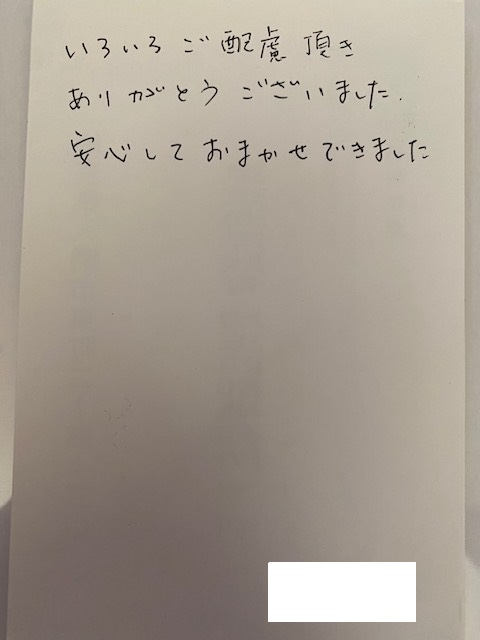 いろいろご配慮頂き
ありがとうございました.
安心しておまかせできました